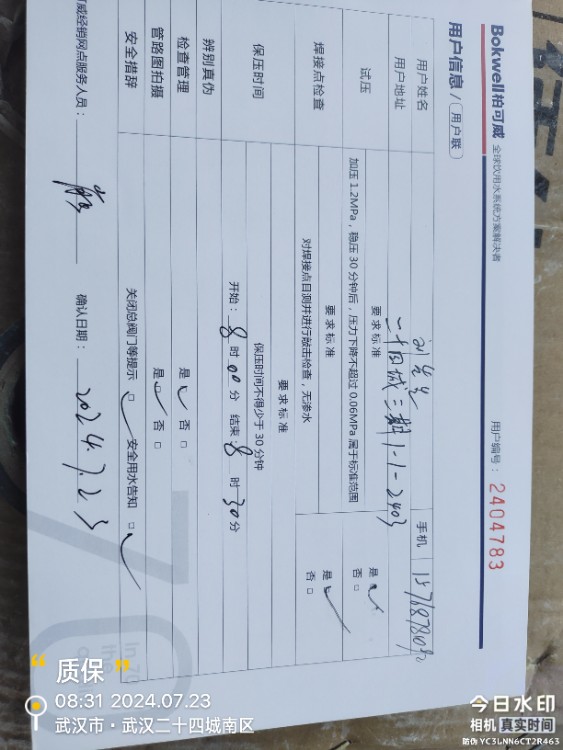 Bokwell柏可威 全球饮用水系统方案解决者
用户编号: 2404783
用户信息 / 用户联
用户姓名 刘先生 手机
用户地址 二十四城二期1-1-2403
试压 要求标准
加压 1.2MPa，稳压 30 分钟后，压力下降不超过 0.06MPa 属于标准范围 是 ☑ 否 □
焊接点检查 要求标准
对焊接点目测并进行敲击检查，无渗水 是 ☑ 否 □
保压时间 要求标准
保压时间不得少于 30 分钟
开始: 8 时 00 分 结束 8 时 30 分
辨别真伪
检查管理 是 ☑ 否 □
管路图拍摄 是 ☑ 否 □
安全措辞 关闭总阀门等提示 ☑ 安全用水告知 ☑
可威经销网点服务人员: 确认日期: 2024.7.23
质保
08:31 2024.07.23
武汉市·武汉二十四城南区
今日水印
相机 真实时间
防伪 YC3LNN6CT2R463